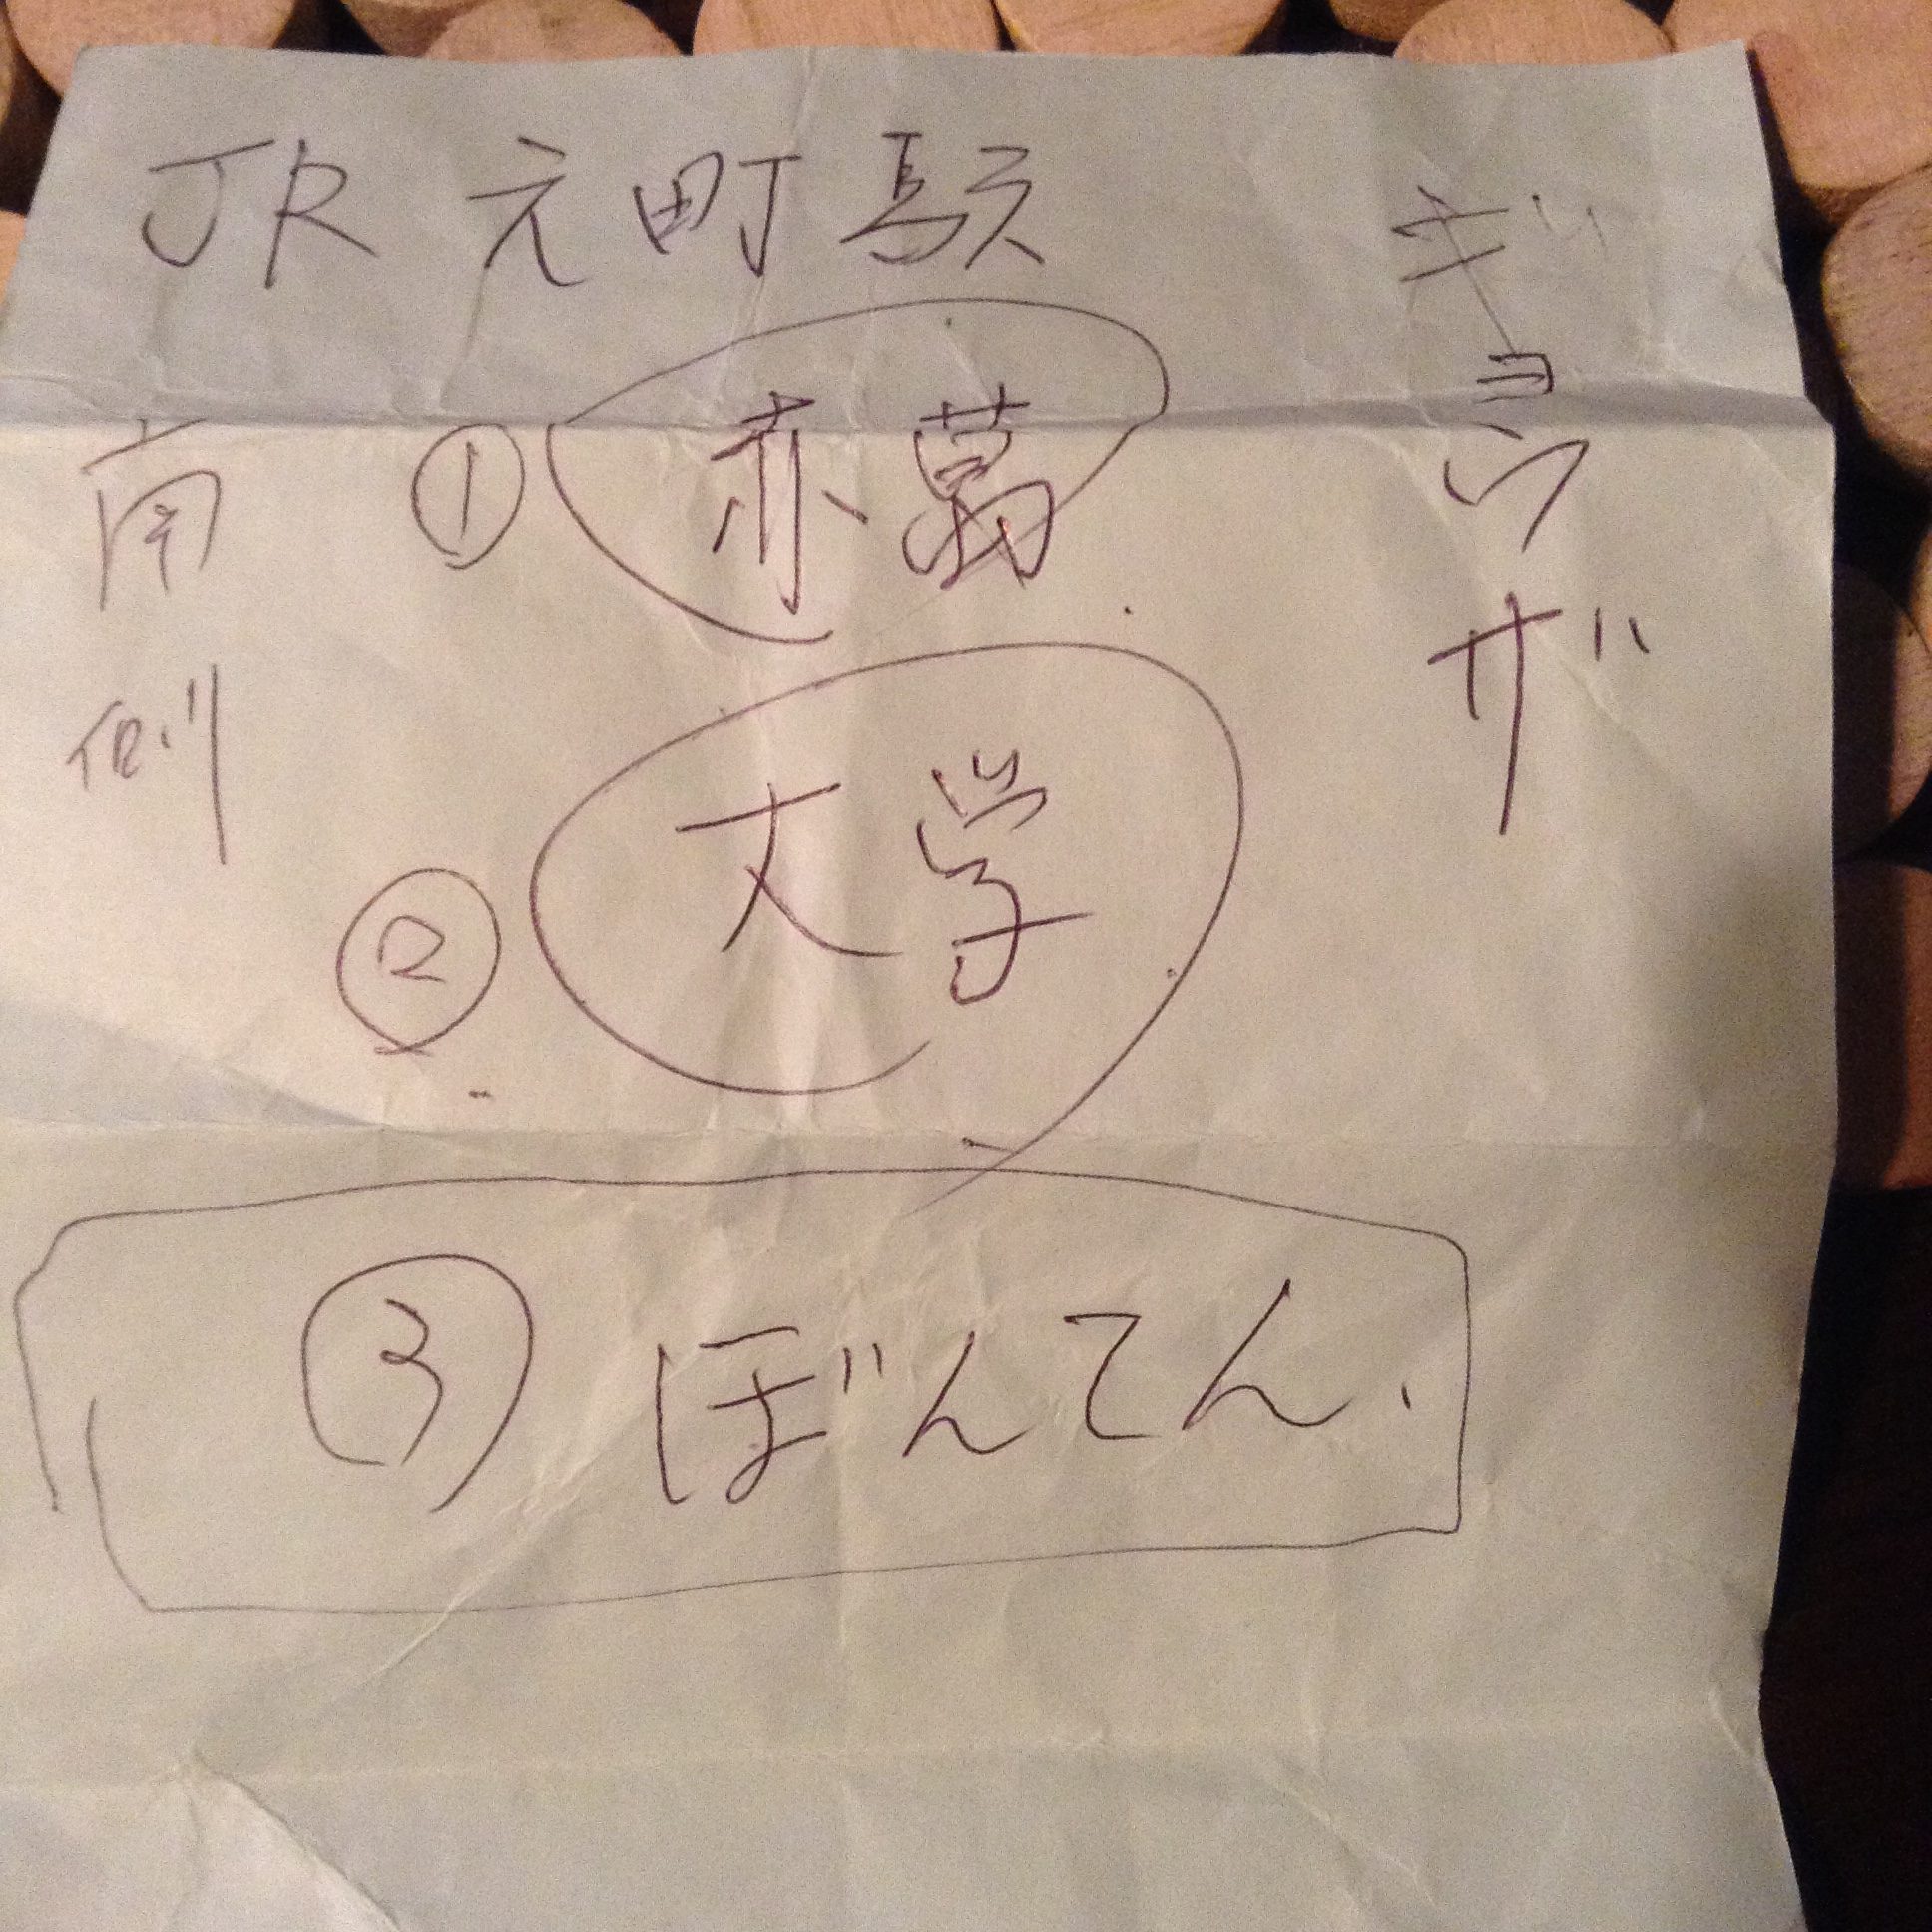 JR 元町駅
ギョウザ
南側
① 赤萬
② 大学
③ ぼんてん.